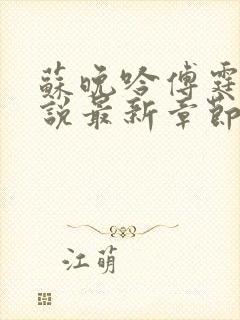 蘇晚吟傅霆
說最新章節
江萌